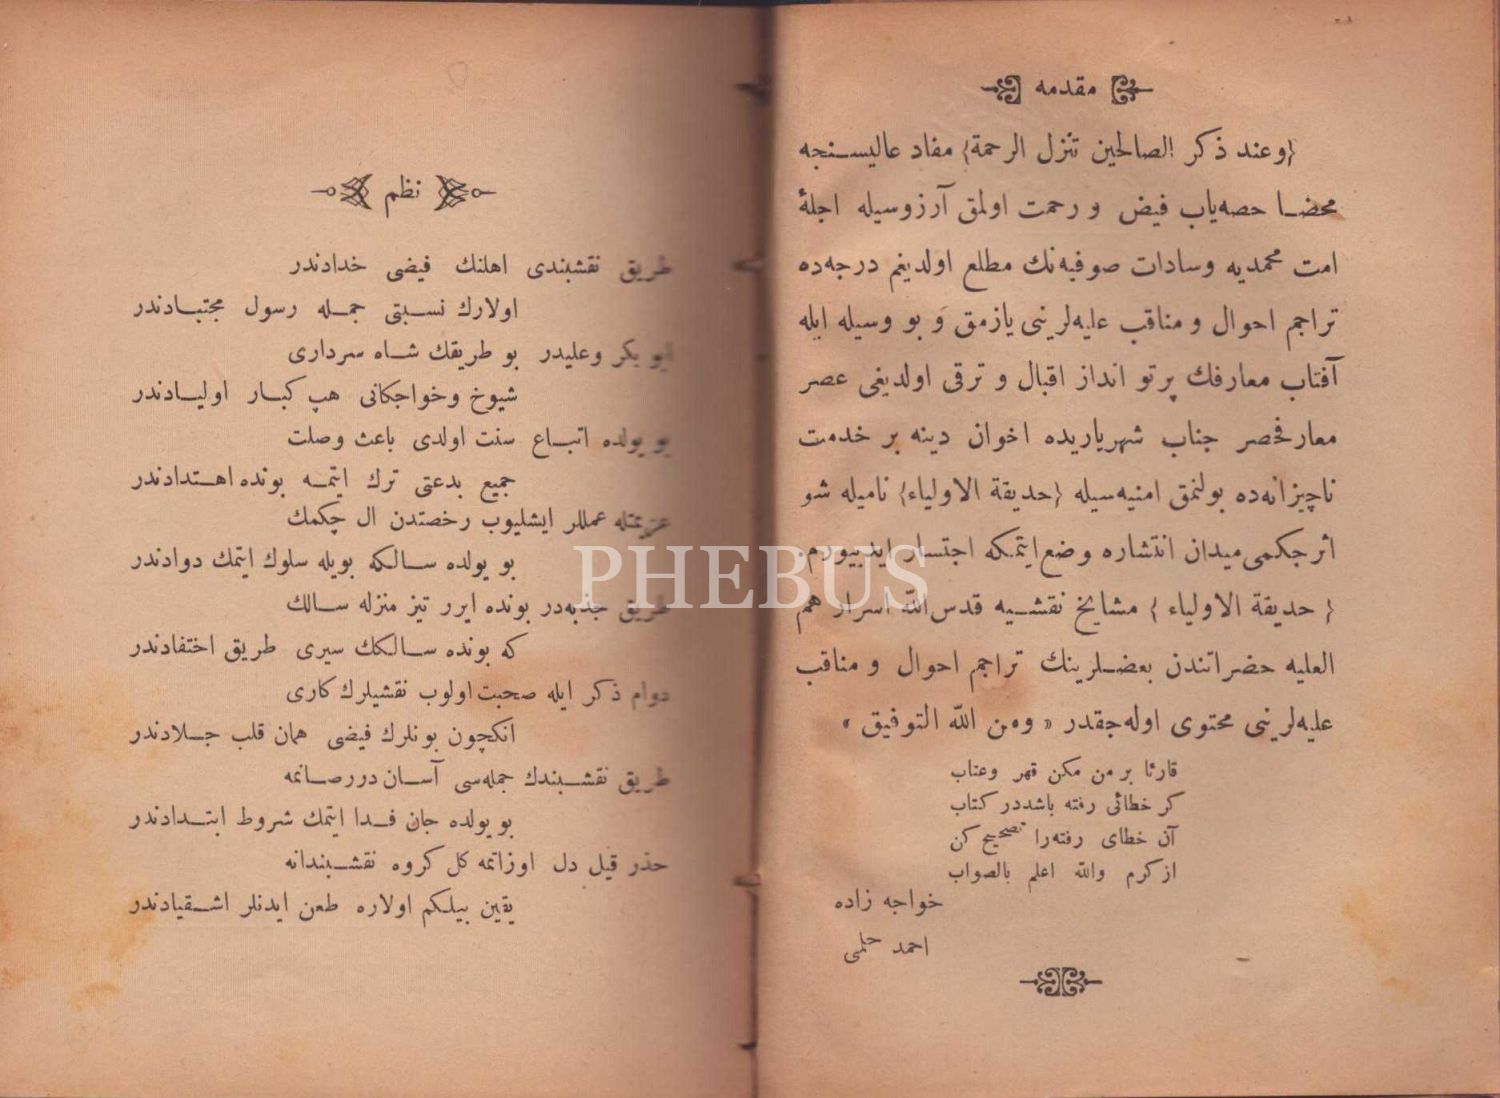 مقدمه
﴿وعند ذكر الصالحين تنزل الرحمة﴾ مفاد عاليسنجه
محضا حصه‌ياب فيض و رحمت اولمق آرزوسيله اجلهٔ
امت محمديه وسادات صوفيه‌نك مطلع اولديغم درجه‌ده
تراجم احوال و مناقب عليه‌لرينى يازمق و بو وسيله ايله
آفتاب معارفك پرتو انداز اقبال و ترقى اولديغى عصر
معارفحصر جناب شهرياريده اخوان دينه بر خدمت
ناچيزانه‌ده بولنمق امنيه‌سيله ﴿حديقة الاولياء﴾ ناميله شو
اثرجكمى ميدان انتشاره وضع ايتمكه اجتسار ايدييورم.
﴿ حديقة الاولياء ﴾ مشايخ نقشيه قدس‌الله اسرار هم
العليه حضراتندن بعضلرينك تراجم احوال و مناقب
عليه‌لرينى محتوى اوله‌جقدر « ومن الله التوفيق »
قارئا بر من مكن قهر وعتاب
كر خطائى رفته باشددر كتاب
آن خطاى رفته‌را تصحيح كن
ازكرم والله اعلم بالصواب
خواجه زاده
احمد حلمى
نظم
طريق نقشبندى اهلنك فيضى خدادندر
اولارك نسبتى جمله رسول مجتبادندر
ابو بكر وعليدر بو طريقك شاه سردارى
شيوخ وخواجكانى هپ كبار اوليادندر
بو يولده اتباع سنت اولدى باعث وصلت
جميع بدعتى ترك ايتمه بونده اهتدادندر
عزيمتله عمللر ايشليوب رخصتدن ال چكمك
بو يولده سالكه بويله سلوك ايتمك دوادندر
طريق جذبه‌در بونده ايرر تيز منزله سالك
كه بونده سالكك سيرى طريق اختفادندر
دوام ذكر ايله صحبت اولوب نقشيلرك كارى
انكچون بونلرك فيضى همان قلب جلادندر
طريق نقشبندك جمله‌سى آسان درر صانمه
بو يولده جان فدا ايتمك شروط ابتدادندر
حذر قيل دل اوزاتمه كل كروه نقشبندانه
يقين بيلكم اولاره طعن ايدنلر اشقيادندر
PHEBUS